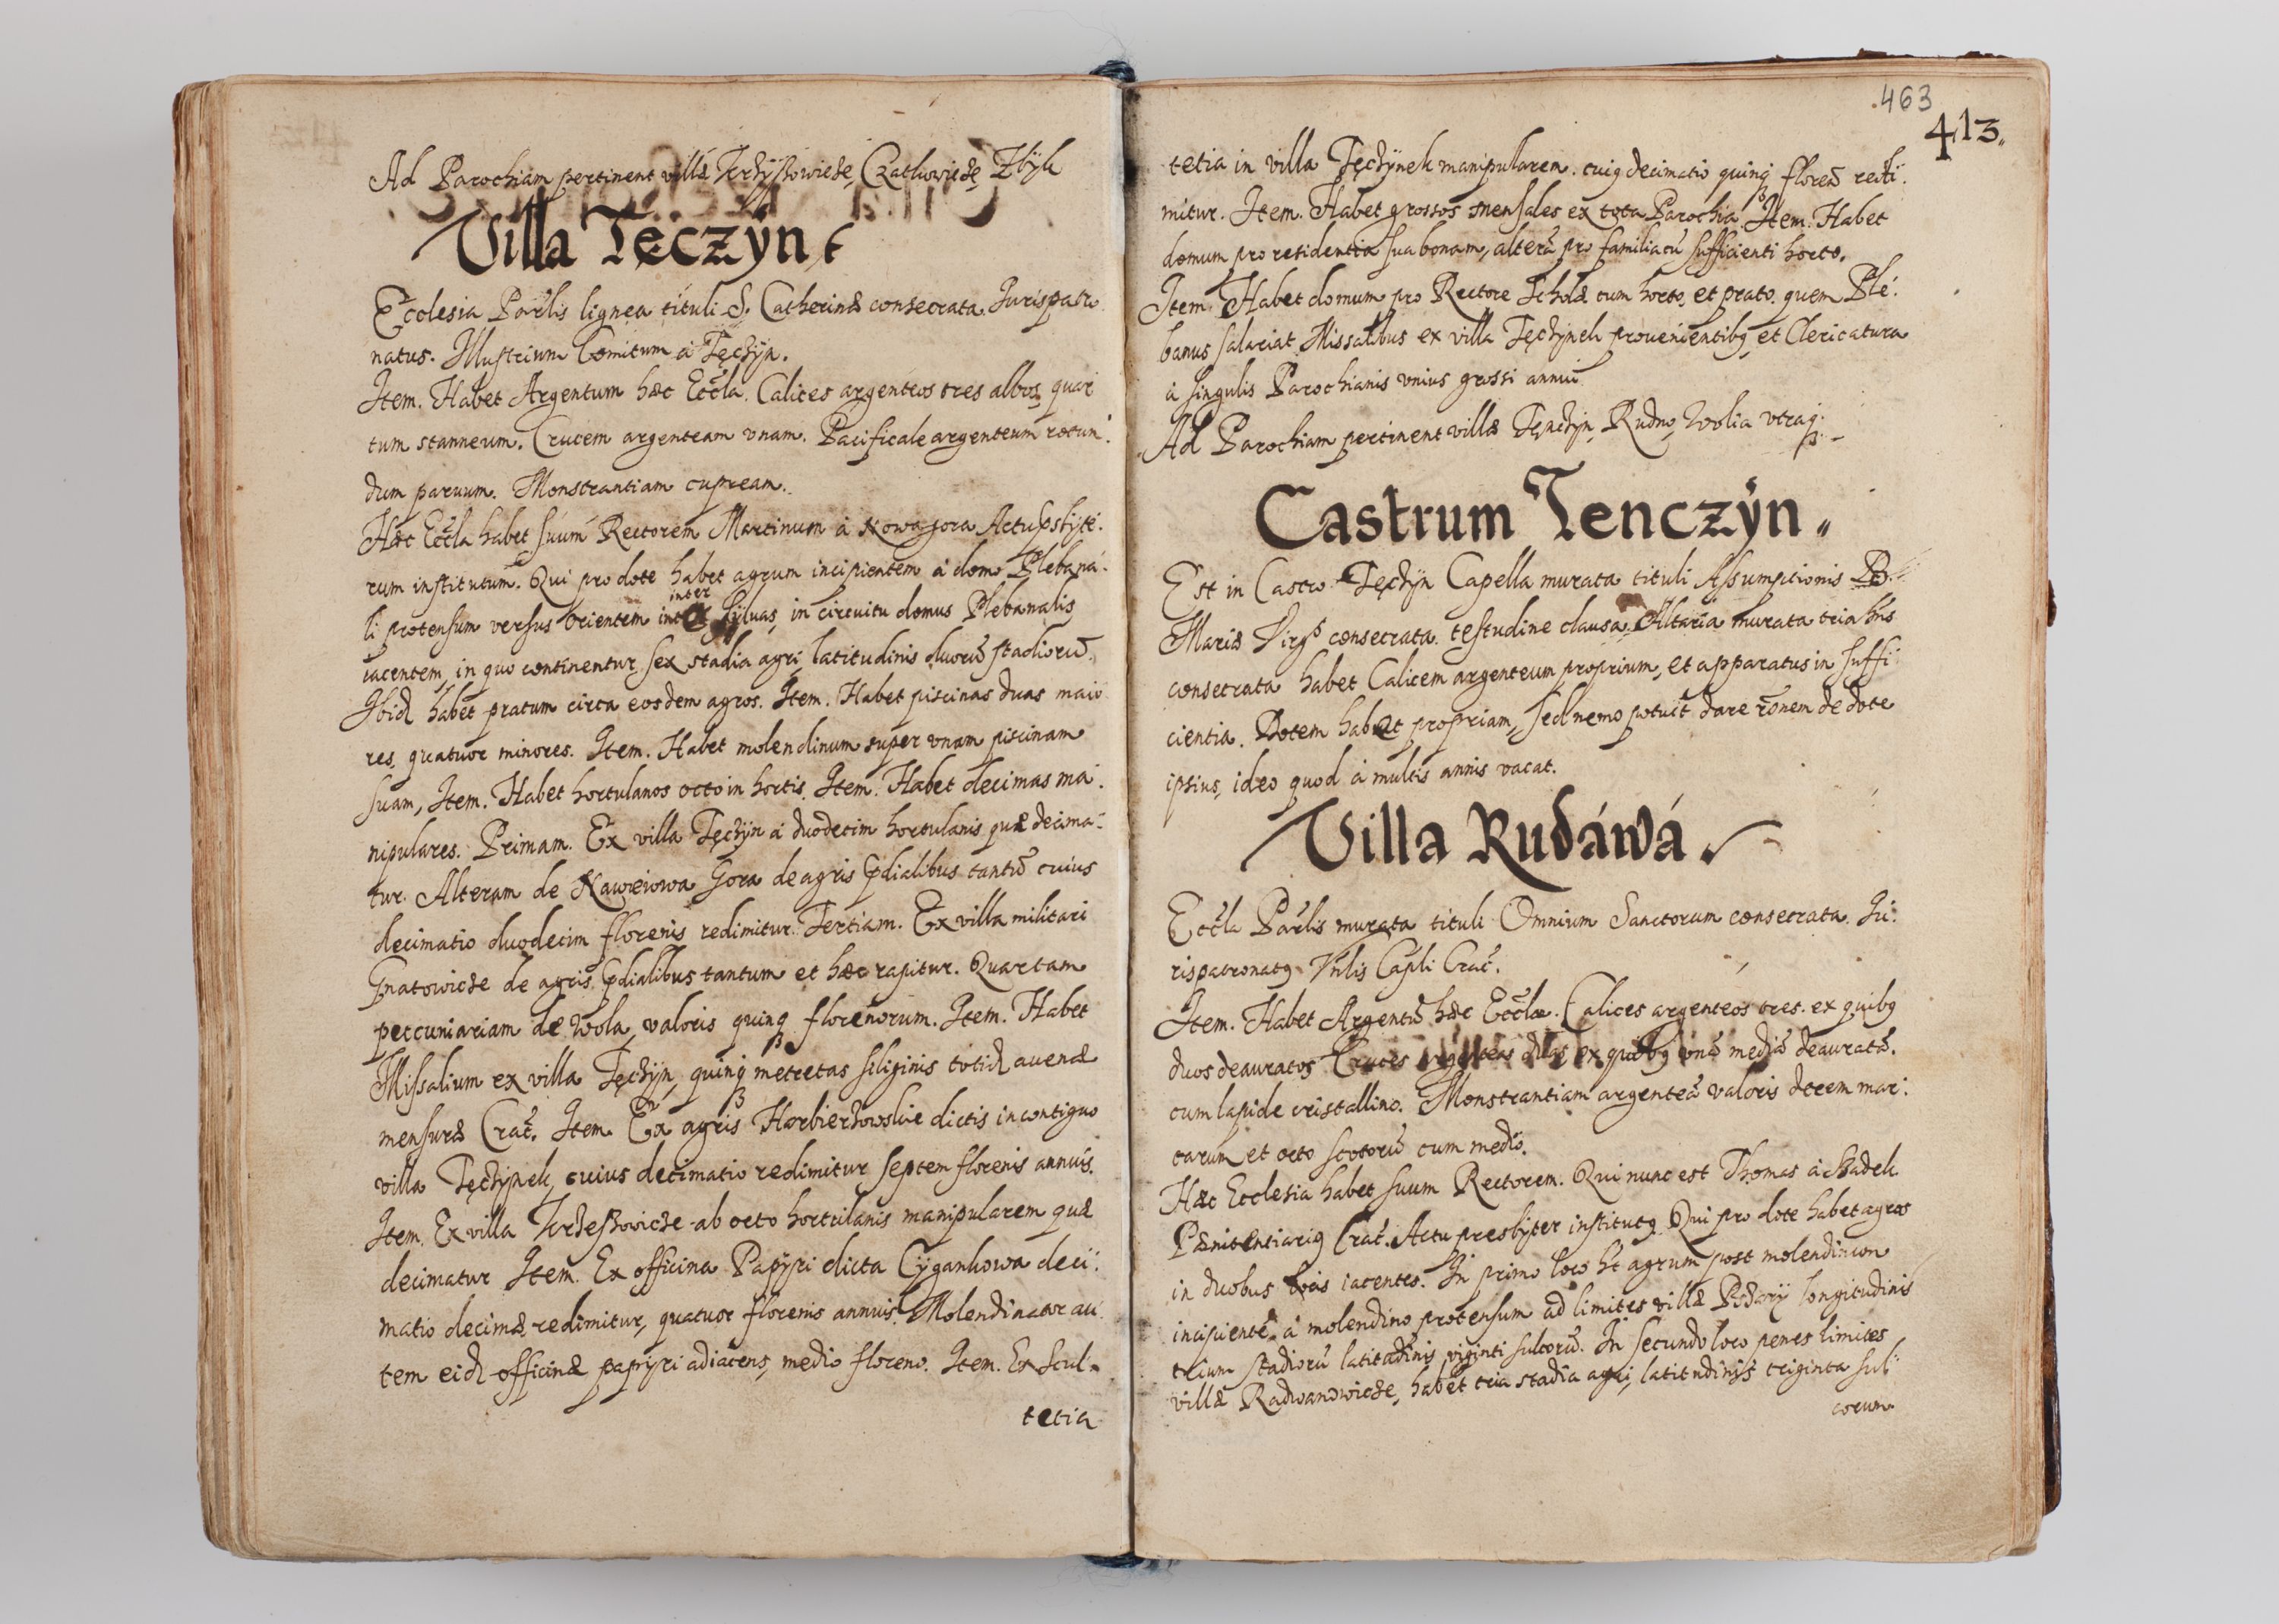 Ad Parochiam pertinent villæ Krzyssowicze, Czatkowicze, Zbyk
Villa Tęczyn
Ecclesia Parlis lignea tituli S. Catherinæ consecrata. Jurispatro
natus. Illustrium Comitum á Tęczyn.
Item. Habet Argentum hæc Eccla. Calices argenteos tres albos, quar
tum stanneum. Crucem argenteam vnam. Pacificale argenteum rotun:
dum paruum. Monstrantiam cupream.
Hæc Eccla habet suum Rectorem Martinum á Nowagora
rum institutum. Qui pro dote habet agrum incipientem á domo Plebana:
li protensum versus orientem inter syluas, in circuitu domus Plebanalis
iacentem, in quo continentur, sex stadia agri, latitudinis duorū stadiorū.
Ibid habet pratum circa eosdem agros. Item. Habet piscinas duas maio
res, quatuor minores. Item. Habet molendinum super vnam piscinam
suam, Item. Habet hortulanos octo in hortis. Item. Habet decimas ma:
nipulares. Primam. Ex villa Tęczyn á duodecim hortulanis quæ decima:
tur. Alteram de Nawoiowa Gora de agris pdialibus tantū cuius
decimatio duodecim florenis redimitur. Tertiam. Ex villa militari
Gnatowicze de agris pdialibus tantum et hæc rapitur. Quartam
peccuniariam de Wola, valoris quinq florenorum. Item. Habet
Missalium ex villa Tęczyn, quinq metretas siliginis totid auenæ
mensuræ Crac. Item. Ex agris Harbierzowskie dictis in contiguo
villa Tęczynek, cuius decimatio redimitur septem florenis annuis.
Item. Ex villa ab octo hortulanis manipularem quæ
decimatur Item. Ex officina Papyri dicta Cygankowa deci:
matio decimæ redimitur, quatuor florenis annuis. Molendinator au
tem eid officinæ papyri adiacens, medio floreno. Item. Ex Scul
tetia
463
413.
tetia in villa Tęczynek manipularem. cuig decimatio quinq floren redi:
mitur. Item. Habet grossos mensales ex tota Parochia. Item. Habet
domum pro residentia sua bonam, alterā pro familia cū sufficienti horto.
Item. Habet domum pro Rectore Scholæ cum horto, et prato. quem Ple:
banus salariat Missalibus ex villa Tęczynek prouenientibg, et Clericatura
á singulis Parochianis vnius grossi annui
Ad Parochiam pertinent villæ Tęnczyn, Rudno, Wolia vtraq.
Castrum Tenczyn
Est in Castro Tęczyn Capella murata tituli Assumptionis B.
Mariæ Virgs consecrata. testudine clausa. Altaria murata tria hns
consecrata habet Calicem argenteum proprium, et apparatus in suffi:
cientia. Dotem habet propriam, sed nemo potuit dare ronem de dote
ipsius, ideo quod á multis annis vacat.
Villa Rudáwá
Eccla Parlis murata tituli Omnium Sanctorum consecrata. Ju:
rispatronatg Vnlis Capli Crac.
Item. Habet Argentū hæc Eccla. Calices argenteos tres. ex quibg
duos deauratos Cruces argenteas duas ex quibg vnā mediā deauratā.
cum lapide cristallino. Monstrantiam argenteā valoris decem mar:
carum et octo scotorū cum medio.
Hæc Ecclesia habet suum Rectorem. Qui nunc est Thomas á Sbadek
Pænitentiarig Crac. Actu presbyter institutg. Qui pro dote habet agros
in duobus locis iacentes. In primo loco ht agrum post molendinum
incipientē á molendino protensum ad limites villæ Pisary longitudinis
trium stadiorū latitudinis, viginti sulcorū. In secundo loco penes limites
villæ Radwanowicze, habet tria stadia agri, latitudinis triginta sul:
corum